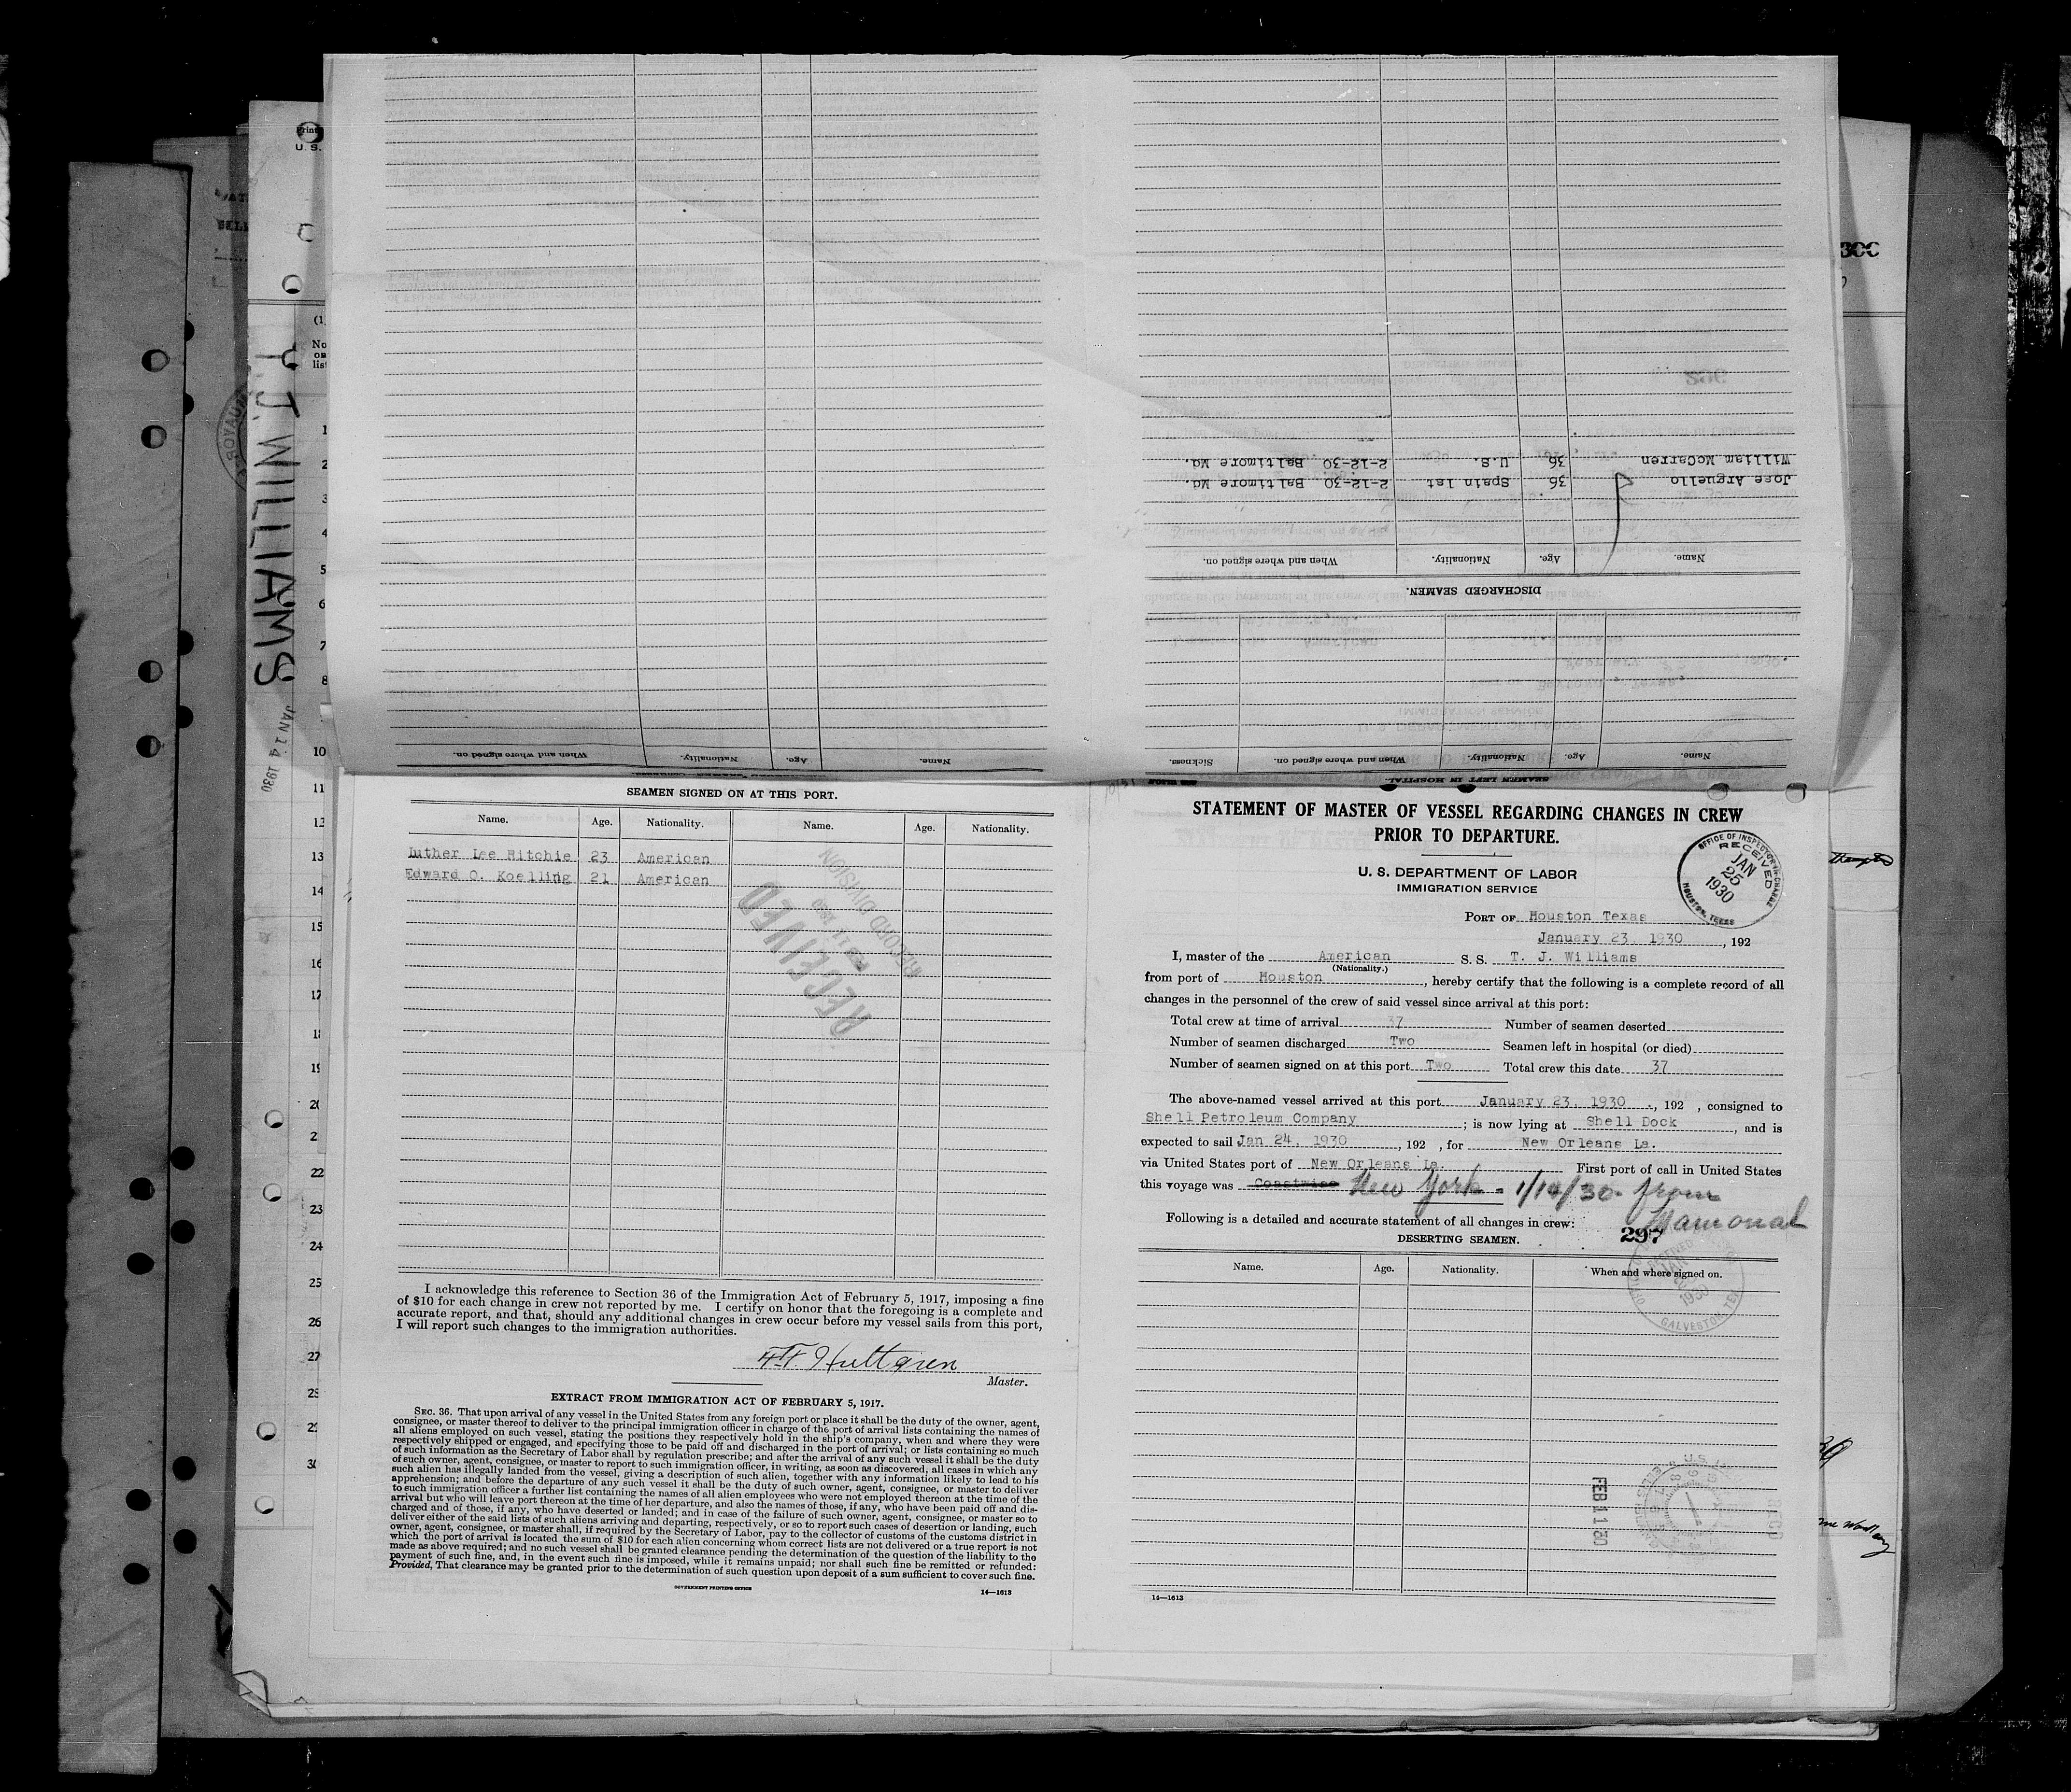 Print
U. S.
T. J. WILLIAMS
JAN 14 1930
SEAMEN LEFT IN HOSPITAL.
Name. Age. Nationality. When and where signed on. Sickness.
DISCHARGED SEAMEN.
Name. Age. Nationality. When and where signed on.
Jose Arguello 36 Spain 1st 2-12-30 Baltimore Md.
William McCarren 36 U.S. 2-12-30 Baltimore Md.
Name. Age. Nationality. When and where signed on.
SEAMEN SIGNED ON AT THIS PORT.
Name. Age. Nationality. Name. Age. Nationality.
Luther Lee Ritchie 23 American
Edward O. Koelling 21 American
RECEIVED
RECORD DIVISION
I acknowledge this reference to Section 36 of the Immigration Act of February 5, 1917, imposing a fine
of $10 for each change in crew not reported by me. I certify on honor that the foregoing is a complete and
accurate report, and that, should any additional changes in crew occur before my vessel sails from this port,
I will report such changes to the immigration authorities.
Hultgren
Master.
EXTRACT FROM IMMIGRATION ACT OF FEBRUARY 5, 1917.
SEC. 36. That upon arrival of any vessel in the United States from any foreign port or place it shall be the duty of the owner, agent,
consignee, or master thereof to deliver to the principal immigration officer in charge of the port of arrival lists containing the names of
all aliens employed on such vessel, stating the positions they respectively hold in the ship's company, when and where they were
respectively shipped or engaged, and specifying those to be paid off and discharged in the port of arrival; or lists containing so much
of such information as the Secretary of Labor shall by regulation prescribe; and after the arrival of any such vessel it shall be the duty
of such owner, agent, consignee, or master to report to such immigration officer, in writing, as soon as discovered, all cases in which any
such alien has illegally landed from the vessel, giving a description of such alien, together with any information likely to lead to his
apprehension; and before the departure of any such vessel it shall be the duty of such owner, agent, consignee, or master to deliver
to such immigration officer a further list containing the names of all alien employees who were not employed thereon at the time of the
arrival but who will leave port thereon at the time of her departure, and also the names of those, if any, who have been paid off and dis-
charged and of those, if any, who have deserted or landed; and in case of the failure of such owner, agent, consignee, or master so to
deliver either of the said lists of such aliens arriving and departing, respectively, or so to report such cases of desertion or landing, such
owner, agent, consignee, or master shall, if required by the Secretary of Labor, pay to the collector of customs of the customs district in
which the port of arrival is located the sum of $10 for each alien concerning whom correct lists are not delivered or a true report is not
made as above required; and no such vessel shall be granted clearance pending the determination of the question of the liability to the
payment of such fine, and, in the event such fine is imposed, while it remains unpaid; nor shall such fine be remitted or refunded:
Provided, That clearance may be granted prior to the determination of such question upon deposit of a sum sufficient to cover such fine.
GOVERNMENT PRINTING OFFICE
14—1613
STATEMENT OF MASTER OF VESSEL REGARDING CHANGES IN CREW
PRIOR TO DEPARTURE.
U. S. DEPARTMENT OF LABOR
IMMIGRATION SERVICE
OFFICE OF INSPECTOR-IN-CHARGE
RECEIVED
JAN
25
1930
HOUSTON, TEXAS
PORT OF Houston Texas
January 23, 1930, 192
I, master of the American S. S. T. J. Williams
(Nationality.)
from port of Houston, hereby certify that the following is a complete record of all
changes in the personnel of the crew of said vessel since arrival at this port:
Total crew at time of arrival 37 Number of seamen deserted
Number of seamen discharged Two Seamen left in hospital (or died)
Number of seamen signed on at this port Two Total crew this date 37
The above-named vessel arrived at this port January 23, 1930, 192 , consigned to
Shell Petroleum Company; is now lying at Shell Dock, and is
expected to sail Jan 24, 1930, 192 , for New Orleans La.
via United States port of New Orleans La. First port of call in United States
this voyage was Coastwise New York - 1/14/30 from
Mamonal
Following is a detailed and accurate statement of all changes in crew:
297
DESERTING SEAMEN.
Name. Age. Nationality. When and where signed on.
1930
GALVESTON, TEX
FEB 11 30
14—1613